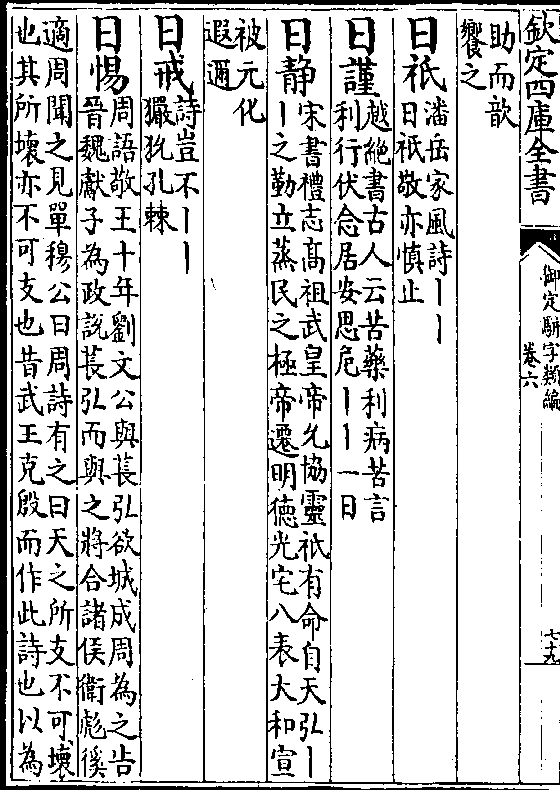 欽定四庫全書
御定駢字類編
卷六
助而歆
饗之
日祇
潘岳家風詩丨丨
日祇敬亦慎止
日謹
越絶書古人云苦藥利病苦言
利行伏念居安思危丨丨一日
日静
宋書禮志髙祖武皇帝允協靈祇有命自天弘丨
丨之勤立蒸民之極帝遷明徳光宅八表太和宣
被元化
遐邇
日戒
詩豈不丨丨
玁狁孔棘
日惕
周語敬王十年劉文公與萇弘欲城成周為之告
晉魏獻子為政說萇弘而與之將合諸侯衛彪徯
適周聞之見單穆公曰周詩有之曰天之所支不可壞
也其所壞亦不可支也昔武王克殷而作此詩也以為